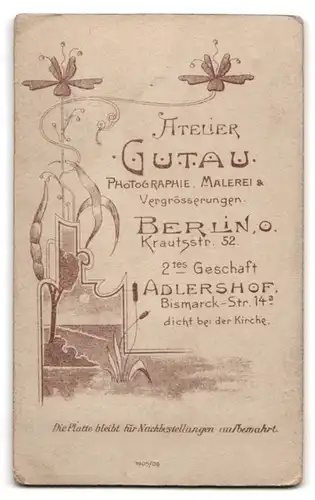 ATELIER
·GUTAU·
PHOTOGRAPHIE. MALEREI &
Vergrösserungen.
BERLIN, O.
Krautsstr. 52.
2tes Geschaft
ADLERSHOF,
Bismarck-Str. 14a
dicht bei der Kirche.
Die Platte bleibt für Nachbestellungen aufbewahrt.